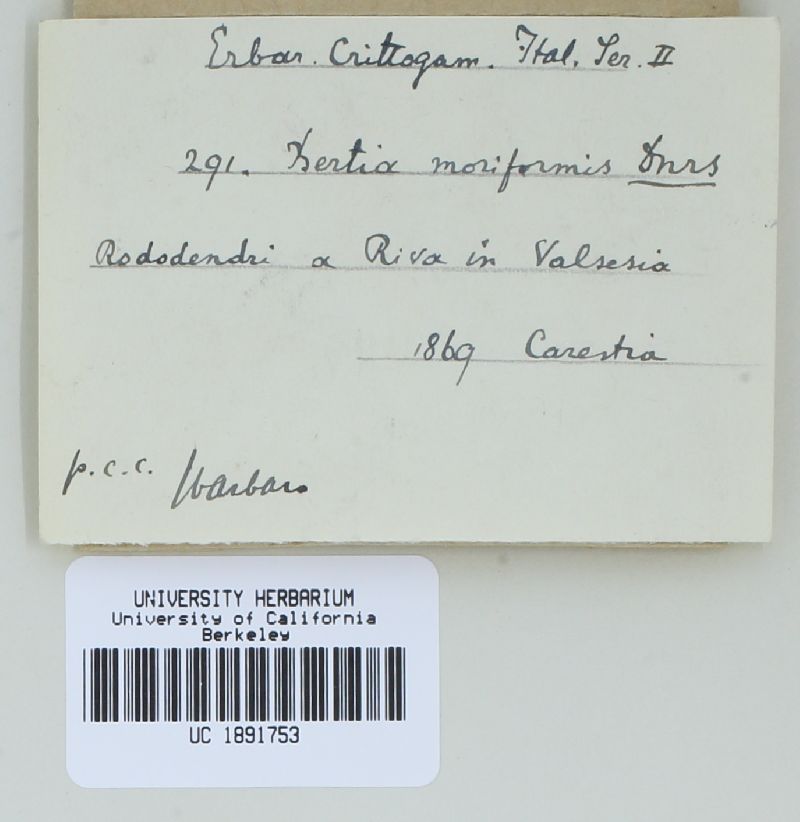 Erbar. Crittogam. Ital. Ser. II
291. Bertia moriformis Dnrs
Rododendri a Riva in Valsesia
1869 Carestia
p.c.c. Barbaro
UNIVERSITY HERBARIUM
University of California
Berkeley
UC 1891753